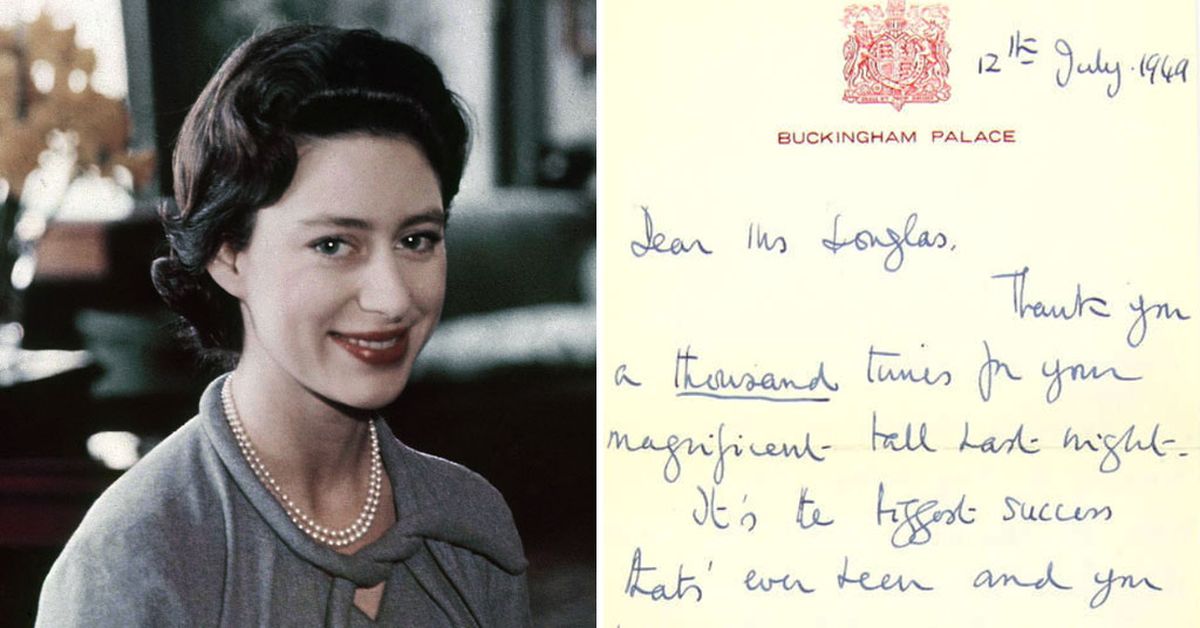 12th July. 1949
BUCKINGHAM PALACE
Dear Mrs Douglas,
Thank you
a thousand times for your
magnificent ball last night.
It's the biggest success
thats' ever been and you